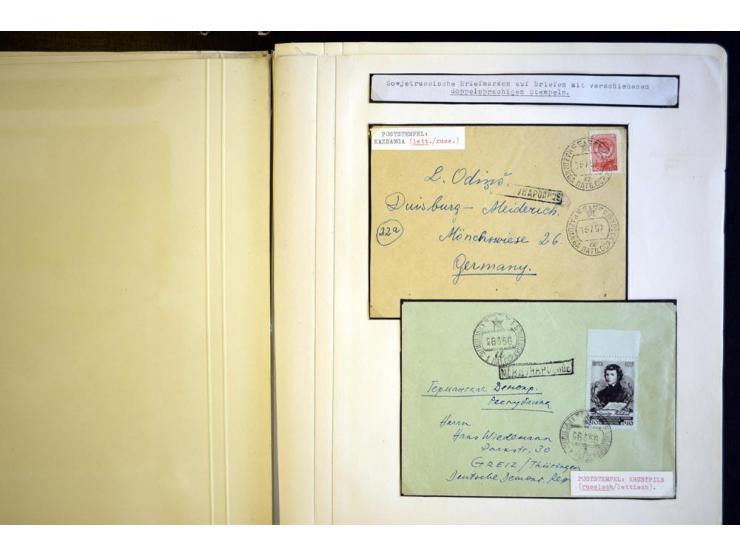 Sowjetrussische Briefmarken auf Briefen mit verschiedenen
doppelsprachigen Stempeln.
POSTSTEMPEL:
KAZDANGA (lett./russ.)
L. Odiņš.
Duisburg - Meiderich.
22a
Mönchswiese 26.
Germany.
МЕЖДУНАРОДНОЕ
Германская Демокр.
Республика
Herrn
Hans Wiedemann
Parkstr. 30
GREIZ/Thüringen
Deutsche Demokr. Rep
POSTSTEMPEL: KRUSTPILS
(russisch/lettisch).